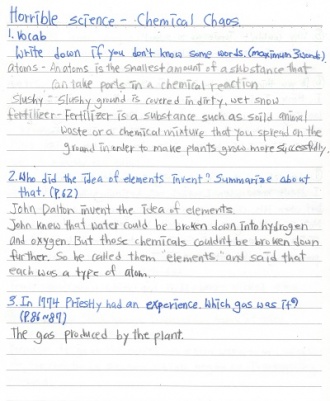 Horrible science - Chemical Chaos.
1. Vocab
Write down if you don't know some words. (maximum 3 words)
atoms - An atoms is the smallest amount of a substance that
can take parts in a chemical reaction
Slushy - Slushy ground is covered in dirty, wet snow
fertilizer - Fertilizer is a substance such as soild animal
waste or a chemical mixture that you spread on the
ground in order to make plants grow more successfully.
2. Who did the idea of elements invent? Summarize about
that. (P.62)
John Dalton invent the idea of elements.
John knew that water could be broken down into hydrogen
and oxygen. But those chemicals couldn't be broken down
further. So he called them "elements." and said that
each was a type of atom.
3. In 1774 Priestly had an experience. Which gas was it?
(P.86~87)
The gas produced by the plant.